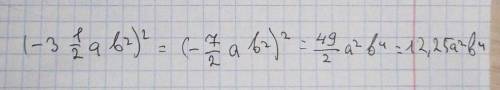 (-3 1/2 a b²)² = (-7/2 a b²)² = 49/2 a² b⁴ = 12,25a²b⁴